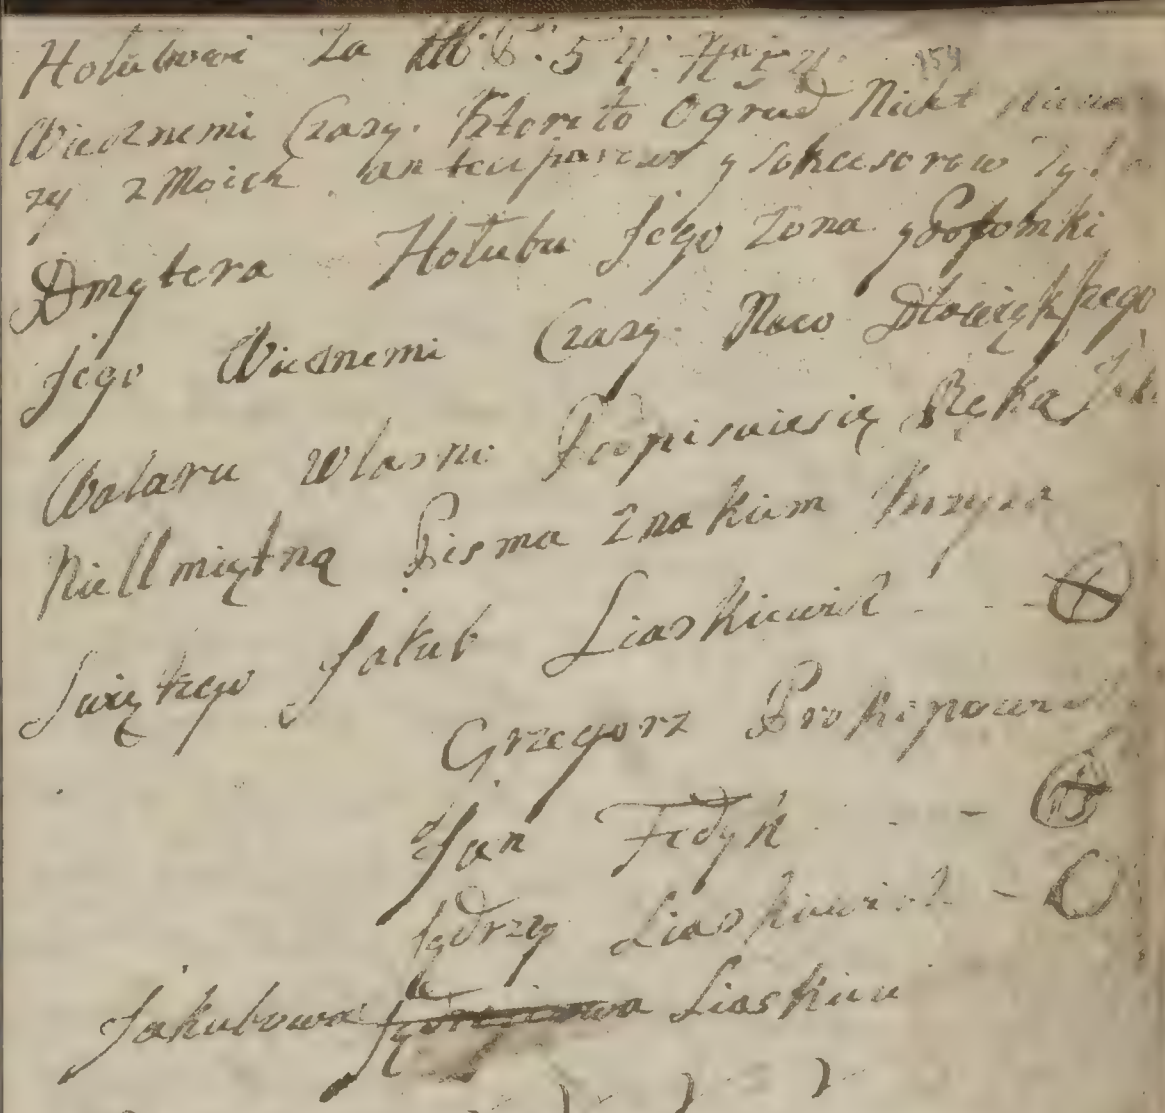 Hołubowi Za
Wiecznemi Czasy. Ktore to Ogrud Nicht
zy z Moich y Sokcesorow
Dmytera Hołubu Jego Zona y Potomki
Jego Wiecznemi Czasy. Naco
Walaru Wlasni Podpisuiesię Ręką
Nie Umiętną Pisma Znakiem Krzyża
Swiętego Jakub Liaskiewicz
Grzegorz Prokopowicz
Jan Fedyk
Jędrzy Liaskiewicz
Jakubowa Liaskiew